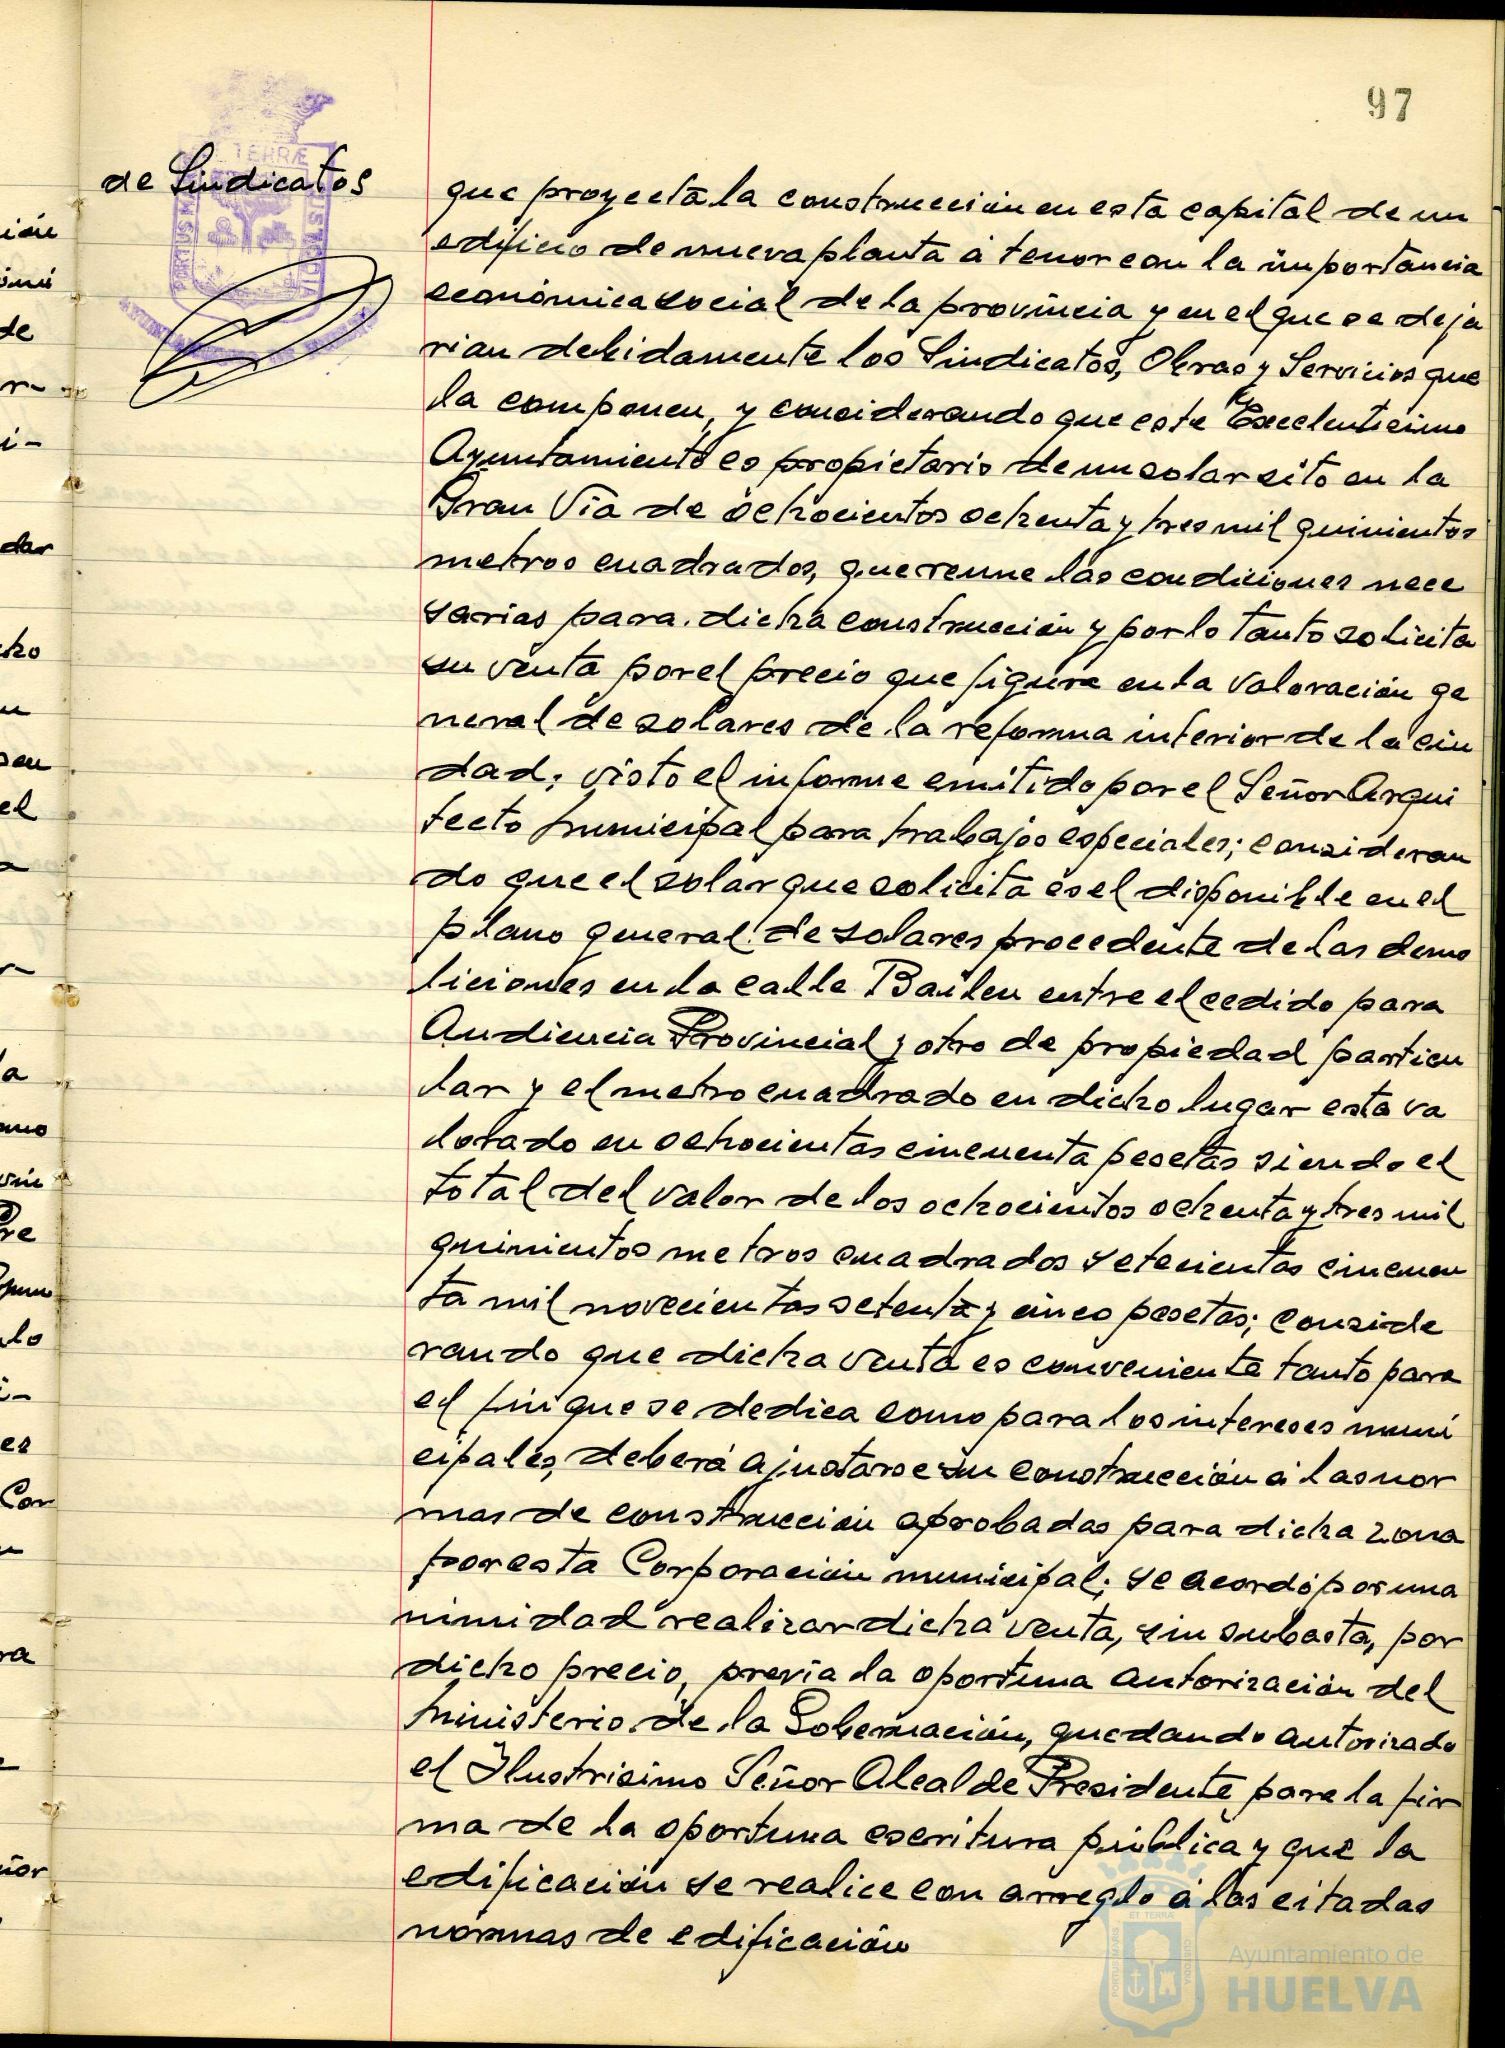 97
de Sindicatos
que proyecta la construcción en esta capital de un
edificio de nueva planta a tenor con la importancia
económica social de la provincia y en el que se deja
rian debidamente los Sindicatos, Obras y Servicios que
la componen, y considerando que este Excelentisimo
Ayuntamiento es propietario de un solar sito en la
Gran Vía de ochocientos ochenta y tres mil quinientos
metros cuadrados, que reune las condiciones nece
sarias para dicha construcción y por lo tanto solicita
su venta por el precio que figura en la valoración ge
neral de solares de la reforma interior de la ciu
dad; visto el informe emitido por el Señor Arqui
tecto Municipal para trabajos especiales; consideran
do que el solar que solicita es el disponible en el
plano general de solares procedente de las demo
liciones en la calle Bailen entre el cedido para
Audiencia Provincial y otro de propiedad particu
lar y el metro cuadrado en dicho lugar esta va
lorado en ochocientas cincuenta pesetas siendo el
total del valor de los ochocientos ochenta y tres mil
quinientos metros cuadrados setecientas cincuen
ta mil novecientas setenta y cinco pesetas; conside
rando que dicha venta es conveniente tanto para
el fin que se dedica como para los intereses muni
cipales, deberá ajustarse su construcción a las nor
mas de construcción aprobadas para dicha zona
por esta Corporación municipal; se acordó por una
nimidad realizar dicha venta, sin subasta, por
dicho precio, previa la oportuna autorización del
Ministerio de la Gobernación, quedando autorizado
el Ilustrisimo Señor Alcalde Presidente para la fir
ma de la oportuna escritura pública y que la
edificación se realice con arreglo a las citadas
normas de edificación
ET TERRA
PORTUS MARIS
CUSTODIA
Ayuntamiento de
HUELVA